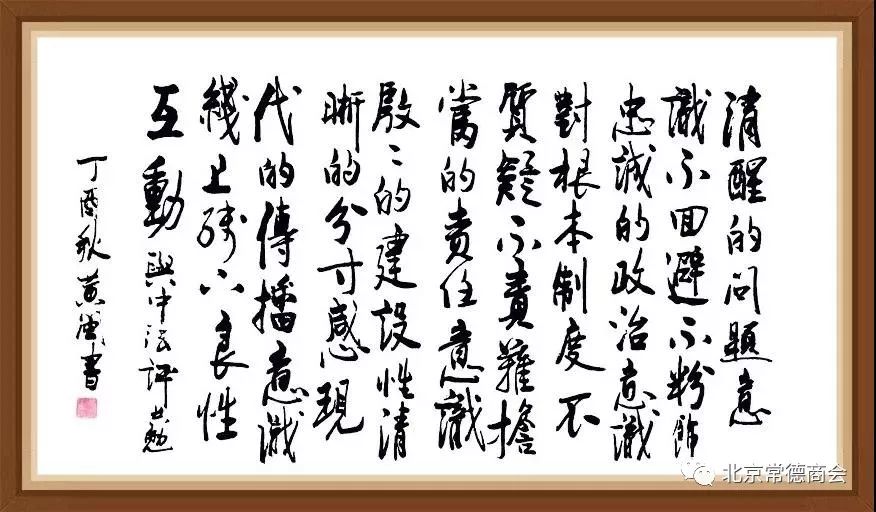 清醒的问題意
識不回避不粉飾
忠誠的政治意識
對根本制度不
質疑不責難擔
當的責任意識
殷〻的建設性清
晰的分寸感現
代的傳播意識
綫上綫下良性
互動 與中法評共勉
丁酉秋黄書
北京常德商会